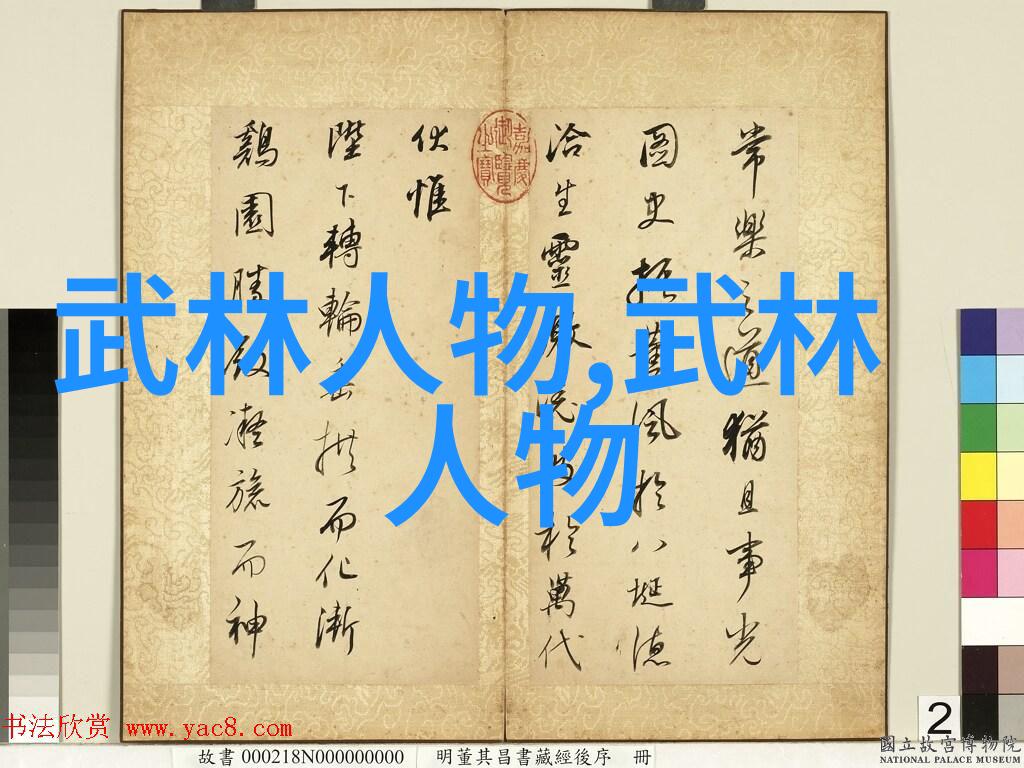 武林人物,武林
人物
常樂之道猶且事光
圖史振薰風於八埏德
洽生靈於萬代
伏惟
陛下轉輪垂拱而化漸
鷄園勝凝旒而神
嘉慶御覽之寶
书法欣赏 www.yac8.com
故書 000218N000000000 明董其昌書藏經後序 冊
2
國立故宮博物院
NATIONAL PALACE MUSEUM